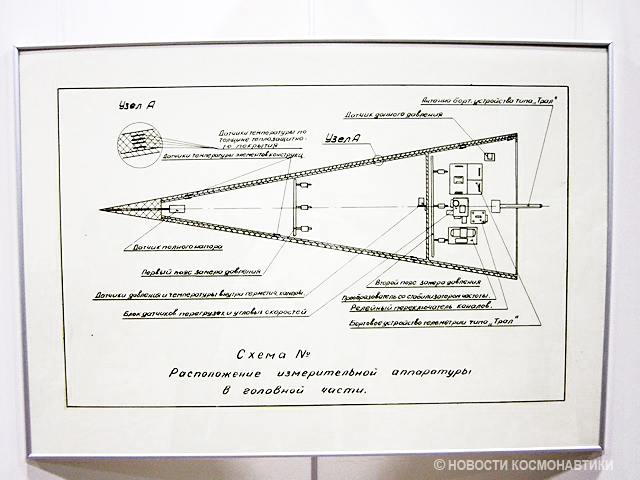 Узел А
Антенна борт. устройства типа „Трал"
Датчик донного давления
Датчики температуры по
толщине теплозащитно-
го покрытия
Датчики температуры элементов конструкц.
Узел А
Датчик полного напора
Первый пояс замера давления
Датчики давления и температуры внутри герметич. камеры.
Блок датчиков перегрузок и угловых скоростей
Второй пояс замера давления
Преобразователь со стабилизатором частоты.
Релейный переключатель каналов.
Бортовое устройство телеметрии типа „Трал"
Схема №
Расположение измерительной аппаратуры
в головной части.
© НОВОСТИ КОСМОНАВТИКИ